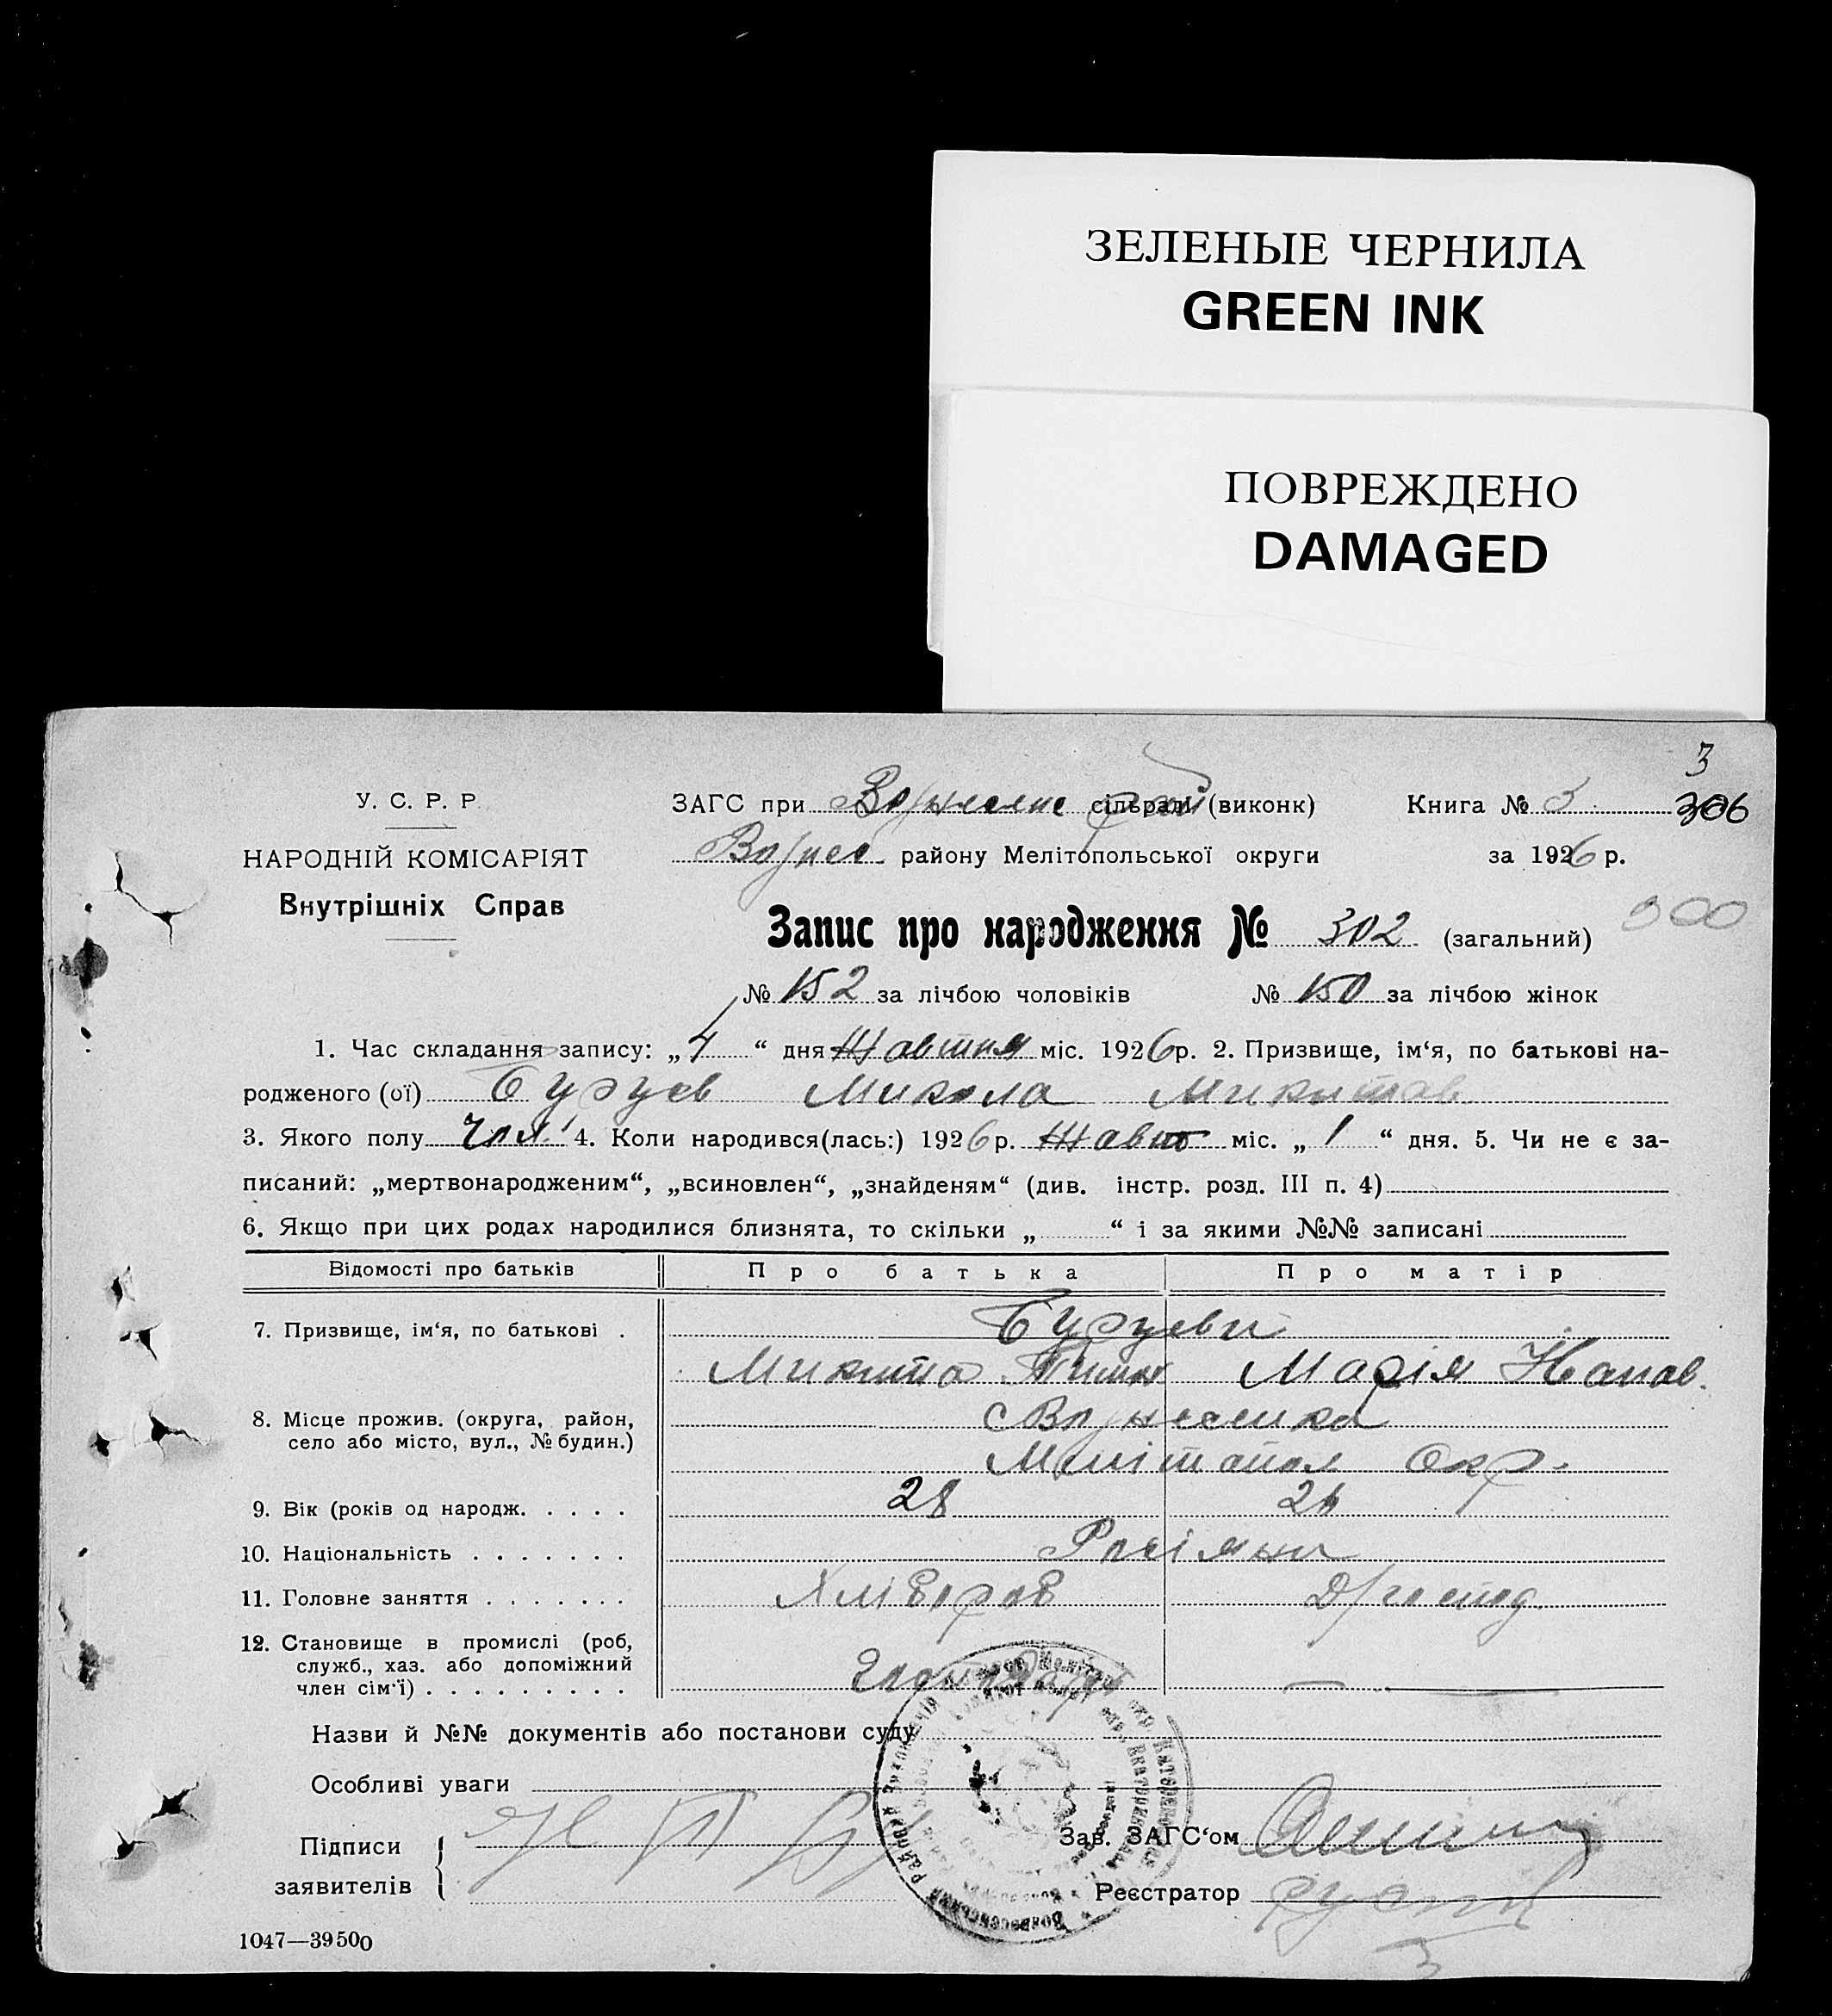 ЗЕЛЕНЫЕ ЧЕРНИЛА
GREEN INK
ПОВРЕЖДЕНО
DAMAGED
3
У. С. Р. Р
ЗАГС при сільраді (виконк) Книга № 3 306
НАРОДНІЙ КОМІСАРІЯТ
Вознес. району Мелітопольської округи за 1926 р.
Внутрішніх Справ
Запис про народження № 302 (загальний) 300
№ 152 за лічбою чоловіків № 150 за лічбою жінок
1. Час складання запису: „4“ дня Жовтня міс. 1926 р. 2. Призвище, ім‘я, по батькові на-
родженого (ої) Микола
3. Якого полу чол. 4. Коли народився(лась:) 1926 р. Жовт міс. „1“ дня. 5. Чи не є за-
писаний: „мертвонародженим“, „всиновлен“, „знайденям“ (див. інстр. розд. III п. 4)
6. Якщо при цих родах народилися близнята, то скільки „ “ і за якими №№ записані
Відомості про батьків Про батька Про матір
7. Призвище, ім‘я, по батькові .
Микита Марія
8. Місце прожив. (округа, район,
село або місто, вул., № будин.)
с Вознесенка
Мелітопол Окр.
9. Вік (років од народж. . . . . 28 26
10. Національність . . . . . . . Росіяни
11. Головне заняття . . . . . . . Хлібороб Д/господ.
12. Становище в промислі (роб,
служб., хаз. або допоміжний
член сім‘ї) . . . . . . . . .
Назви й №№ документів або постанови суду
Особливі уваги
Підписи
заявителів
Зав. ЗАГС‘ом
Реєстратор
1047—39500